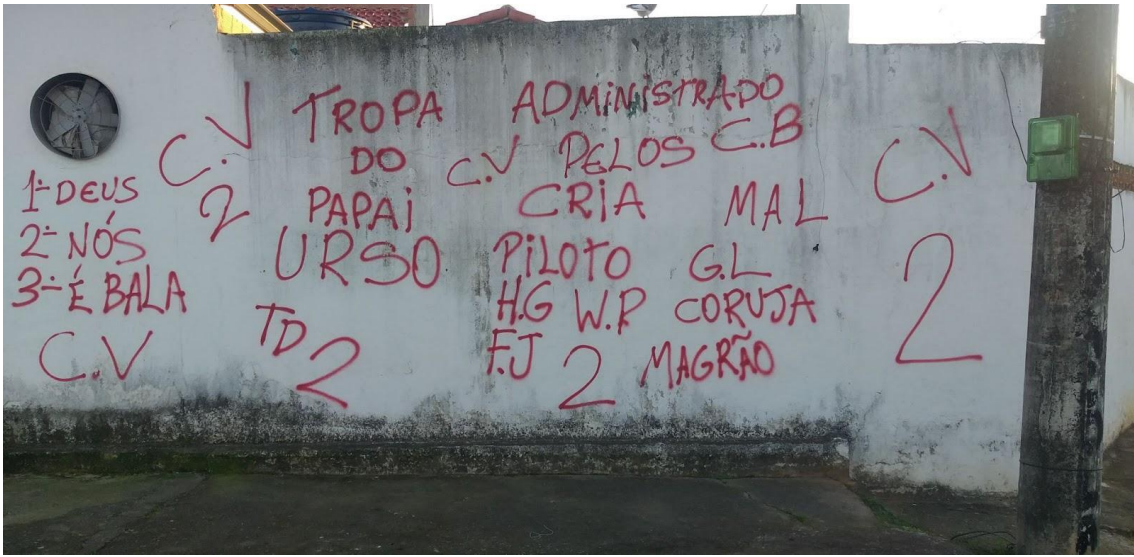 1ª DEUS
2ª NÓS
3ª É BALA
C.V
C.V
2
TROPA
DO
PAPAi
URSO
TD
2
ADMiNiSTRADO
C.V PELOS C.B
CRiA MAL
PiLOTO G.L
H.G W.P CORUJA
F.J 2 MAGRÃO
C.V
2